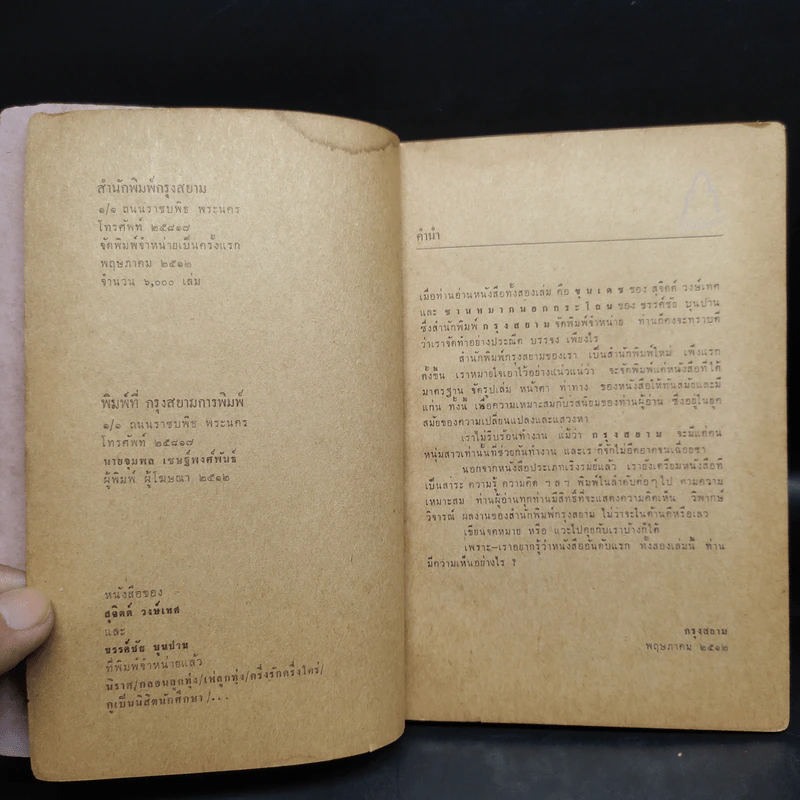 สำนักพิมพ์กรุงสยาม
๑/๑ ถนนราชบพิธ พระนคร
โทรศัพท์ ๒๕๘๑๘
จัดพิมพ์จำหน่ายเป็นครั้งแรก
พฤษภาคม ๒๕๑๒
จำนวน ๖,๐๐๐ เล่ม
พิมพ์ที่ กรุงสยามการพิมพ์
๑/๑ ถนนราชบพิธ พระนคร
โทรศัพท์ ๒๕๘๑๘
นายจุมพล เชษฐ์พงศ์พันธ์
ผู้พิมพ์ ผู้โฆษณา ๒๕๑๒
หนังสือของ
สุจิตต์ วงษ์เทศ
และ
ขรรค์ชัย บุนปาน
ที่พิมพ์จำหน่ายแล้ว
นิราศ/กลอนลูกทุ่ง/เห่ลูกทุ่ง/ครึ่งรักครึ่งใคร่/
กูเป็นนิสิตนักศึกษา/...
คำนำ
เมื่อท่านอ่านหนังสือทั้งสองเล่ม คือ ขุนเดช ของ สุจิตต์ วงษ์เทศ
และ ชานหมากนอกกระโถน ของ ขรรค์ชัย บุนปาน
ซึ่งสำนักพิมพ์ กรุงสยาม จัดพิมพ์จำหน่าย ท่านก็คงจะทราบดี
ว่าเราจัดทำอย่างประณีต บรรจง เพียงไร
สำนักพิมพ์กรุงสยามของเรา เป็นสำนักพิมพ์ใหม่ เพิ่งแรก
ตั้งขึ้น เราหมายใจเอาไว้อย่างแน่วแน่ว่า จะจัดพิมพ์แต่หนังสือที่ได้
มาตรฐาน จัดรูปเล่ม หน้าตา ท่าทาง ของหนังสือให้ทันสมัยและมี
แก่น ทั้งนี้ เพื่อความเหมาะสมกับรสนิยมของท่านผู้อ่าน ซึ่งอยู่ในยุค
สมัยของความเปลี่ยนแปลงและแสวงหา
เราไม่รีบร้อนทำงาน แม้ว่า กรุงสยาม จะมีแต่คน
หนุ่มสาวเท่านั้นที่ช่วยกันทำงาน และเราก็จักไม่อืดอาดจนเฉื่อยชา
นอกจากหนังสือประเภทเริงรมย์แล้ว เรายังเตรียมหนังสือที่
เป็นสาระ ความรู้ ความคิด ฯลฯ พิมพ์ในลำดับต่อๆไป ตามความ
เหมาะสม ท่านผู้อ่านทุกท่านมีสิทธิที่จะแสดงความคิดเห็น วิพากษ์
วิจารณ์ ผลงานของสำนักพิมพ์กรุงสยาม ไม่ว่าจะในด้านดีหรือเลว
เขียนจดหมาย หรือ แวะไปคุยกับเราบ้างก็ได้
เพราะ—เราอยากรู้ว่าหนังสืออันดับแรก ทั้งสองเล่มนี้ ท่าน
มีความเห็นอย่างไร ?
กรุงสยาม
พฤษภาคม ๒๕๑๒